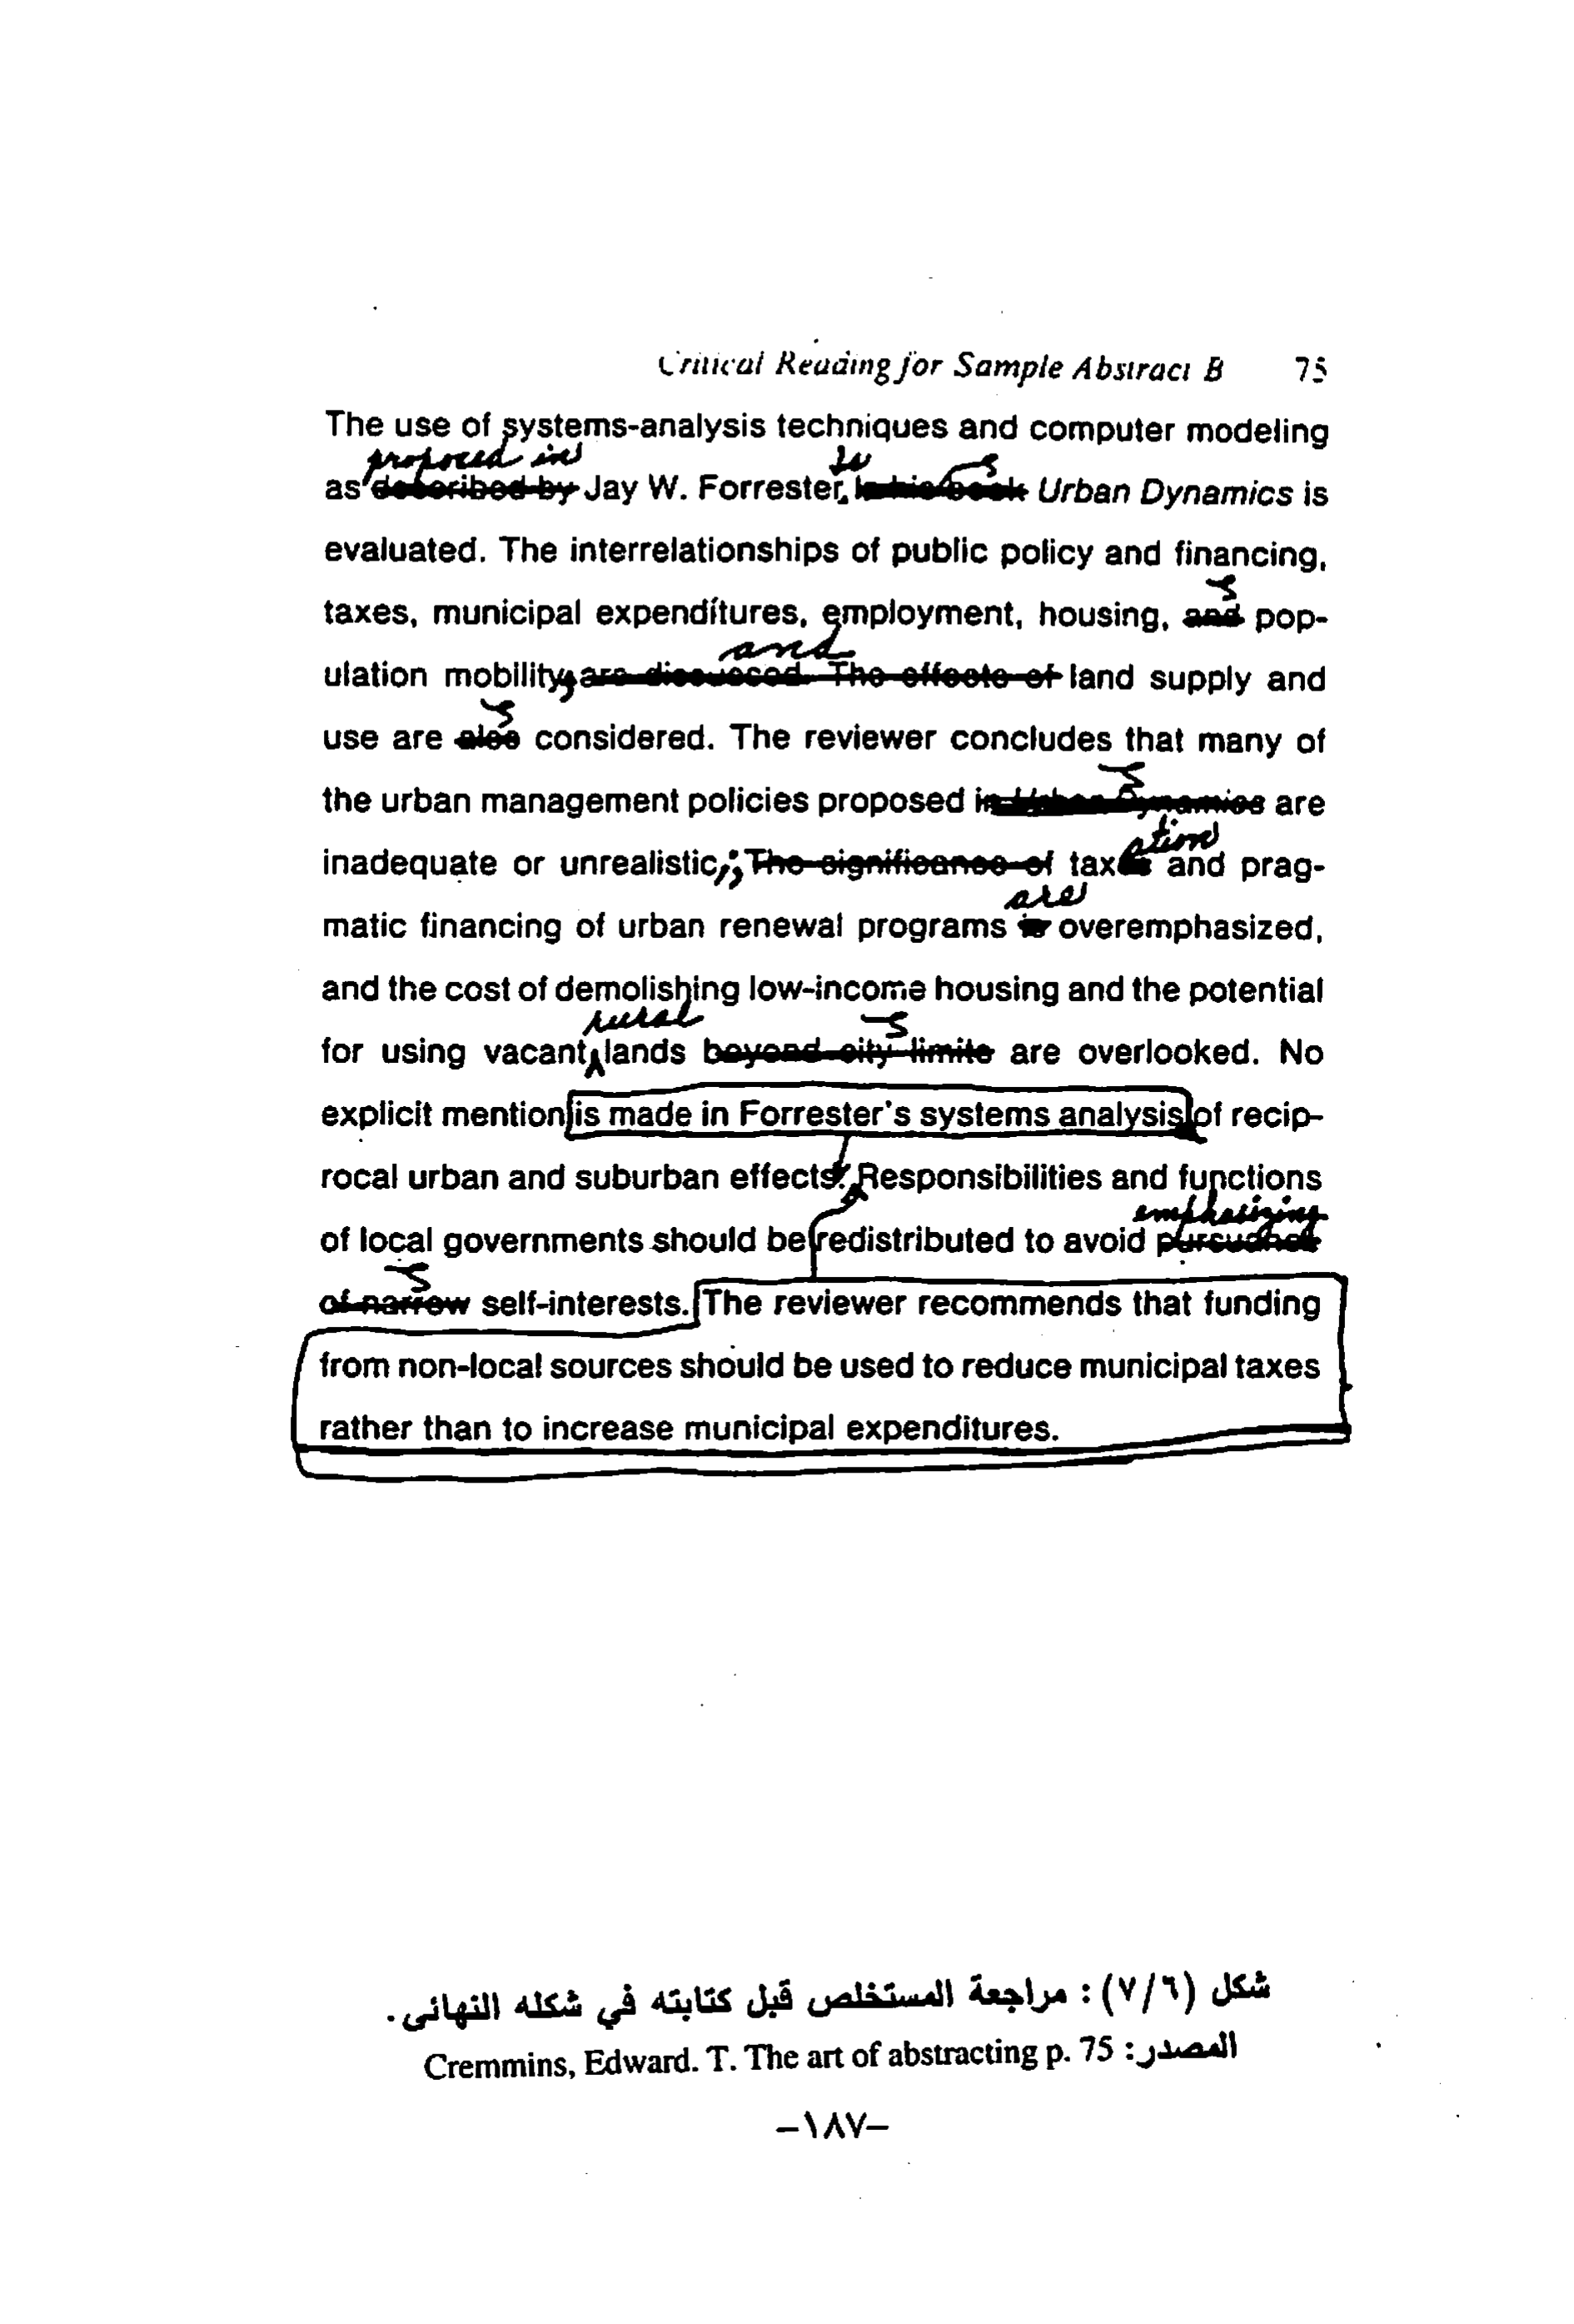 Critical Reading for Sample Abstract B 75
The use of systems-analysis techniques and computer modeling
proposed in
as described by Jay W. Forrester, in his book Urban Dynamics is
evaluated. The interrelationships of public policy and financing,
taxes, municipal expenditures, employment, housing, and pop-
and
ulation mobility, are discussed. The effects of land supply and
use are also considered. The reviewer concludes that many of
the urban management policies proposed in Urban Dynamics are
ation
inadequate or unrealistic,; The significance of taxes and prag-
are
matic financing of urban renewal programs is overemphasized,
and the cost of demolishing low-income housing and the potential
rural
for using vacant lands beyond city limits are overlooked. No
explicit mention is made in Forrester's systems analysis of recip-
rocal urban and suburban effects. Responsibilities and functions
emphasizing
of local governments should be redistributed to avoid
of narrow self-interests. The reviewer recommends that funding
from non-local sources should be used to reduce municipal taxes
rather than to increase municipal expenditures.
شكل (٧/٦) : مراجعة المستخلص قبل كتابته في شكله النهائى.
المصدر: Cremmins, Edward. T. The art of abstracting p. 75
-١٨٧-